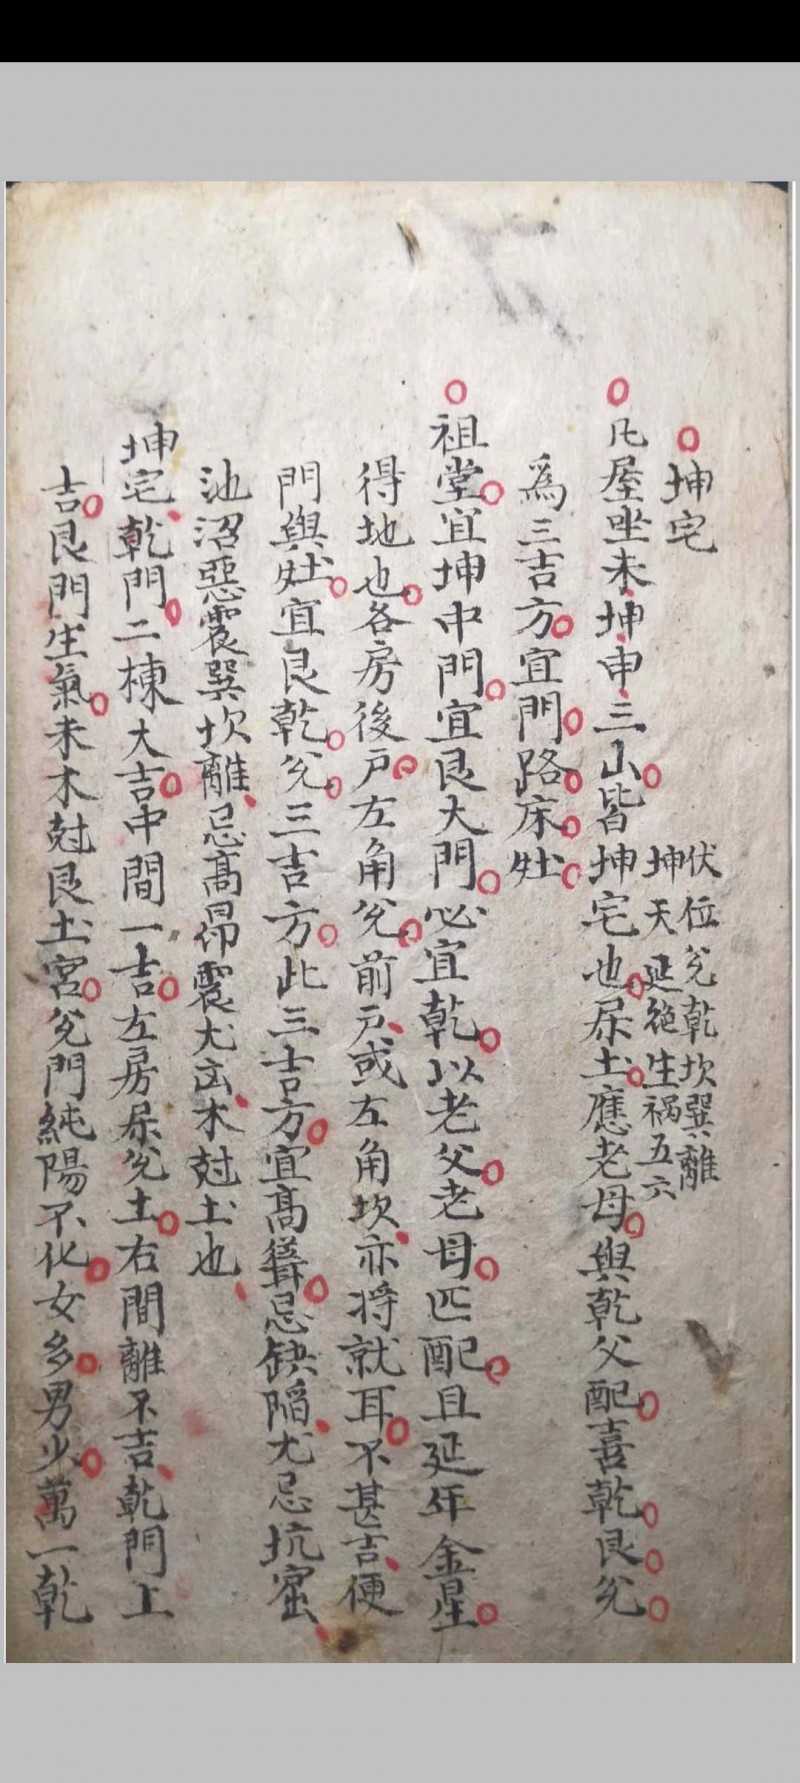 坤宅
伏位兊乾坎巽離
坤天延絶生禍五六
凡屋坐未坤申三山皆坤宅也屬土應老母與乾父配喜乾艮兊
為三吉方宜門路床灶
祖堂宜坤中門宜艮大門必宜乾以老父老母匹配且延年金星
得地也各房後戶左角兊前戶或左角坎亦将就耳不甚吉便
門與灶宜艮乾兊三吉方此三吉方宜高聳忌缺陷尤忌坑窰
池沼惡震巽坎離忌高昻震尤凶木尅土也
坤宅乾門二棟大吉中間一吉左房屬兊土右間離不吉乾門上
吉艮門生氣未木尅艮土宮兊門純陽不化女多男少萬一乾